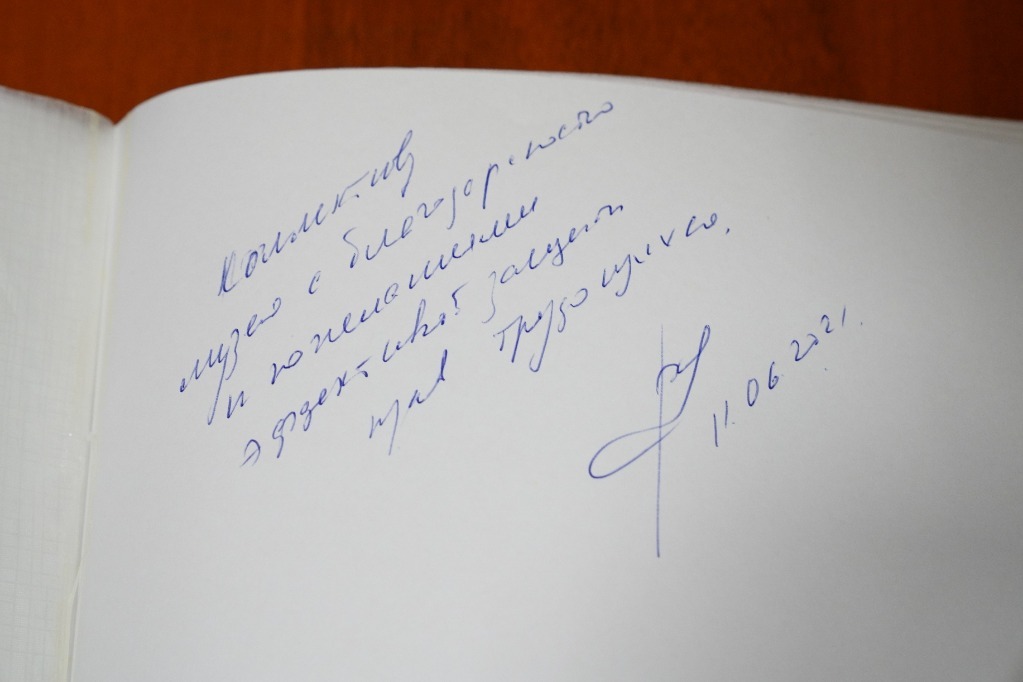 Коллектив
музея с благодарностью
и пожеланиями
эффективной защиты
прав трудящихся.
11.06.2021.